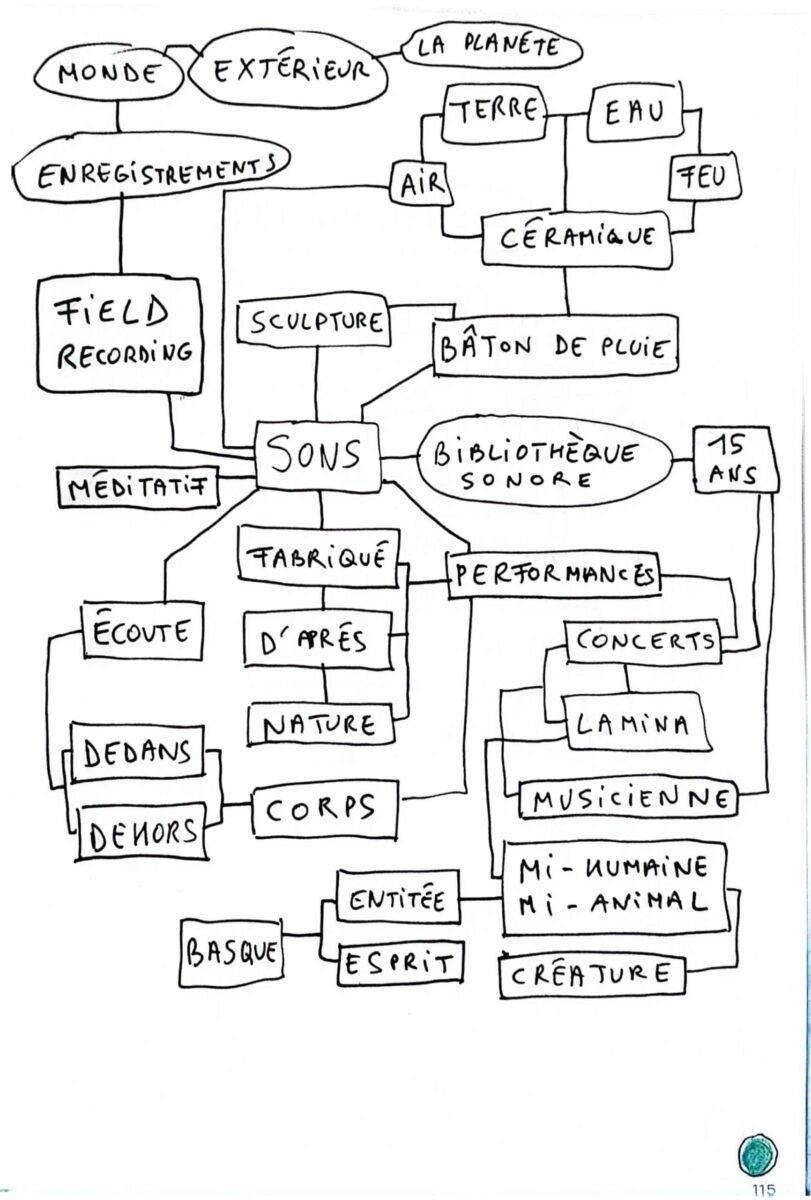 MONDE
EXTÉRIEUR
LA PLANÈTE
TERRE
EAU
ENREGISTREMENTS
AIR
FEU
CÉRAMIQUE
FIELD
RECORDING
SCULPTURE
BÂTON DE PLUIE
SONS
BIBLIOTHÈQUE
SONORE
15
ANS
MÉDITATIF
FABRIQUÉ
PERFORMANCES
ÉCOUTE
D'APRÉS
CONCERTS
NATURE
LAMINA
DEDANS
DEHORS
CORPS
MUSICIENNE
MI-HUMAINE
MI-ANIMAL
ENTITÉE
BASQUE
ESPRIT
CRÉATURE
115